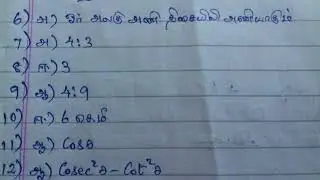 6) அ) ஓர் அலகு அணி திசையிலி அணியாகும்
7) அ) 4:3
8) ஈ) 3
9) ஆ) 4:9
10) ஈ) 6 செ.மீ
11) ஆ) Cosθ
12) ஆ) Cosec²θ - Cot²θ